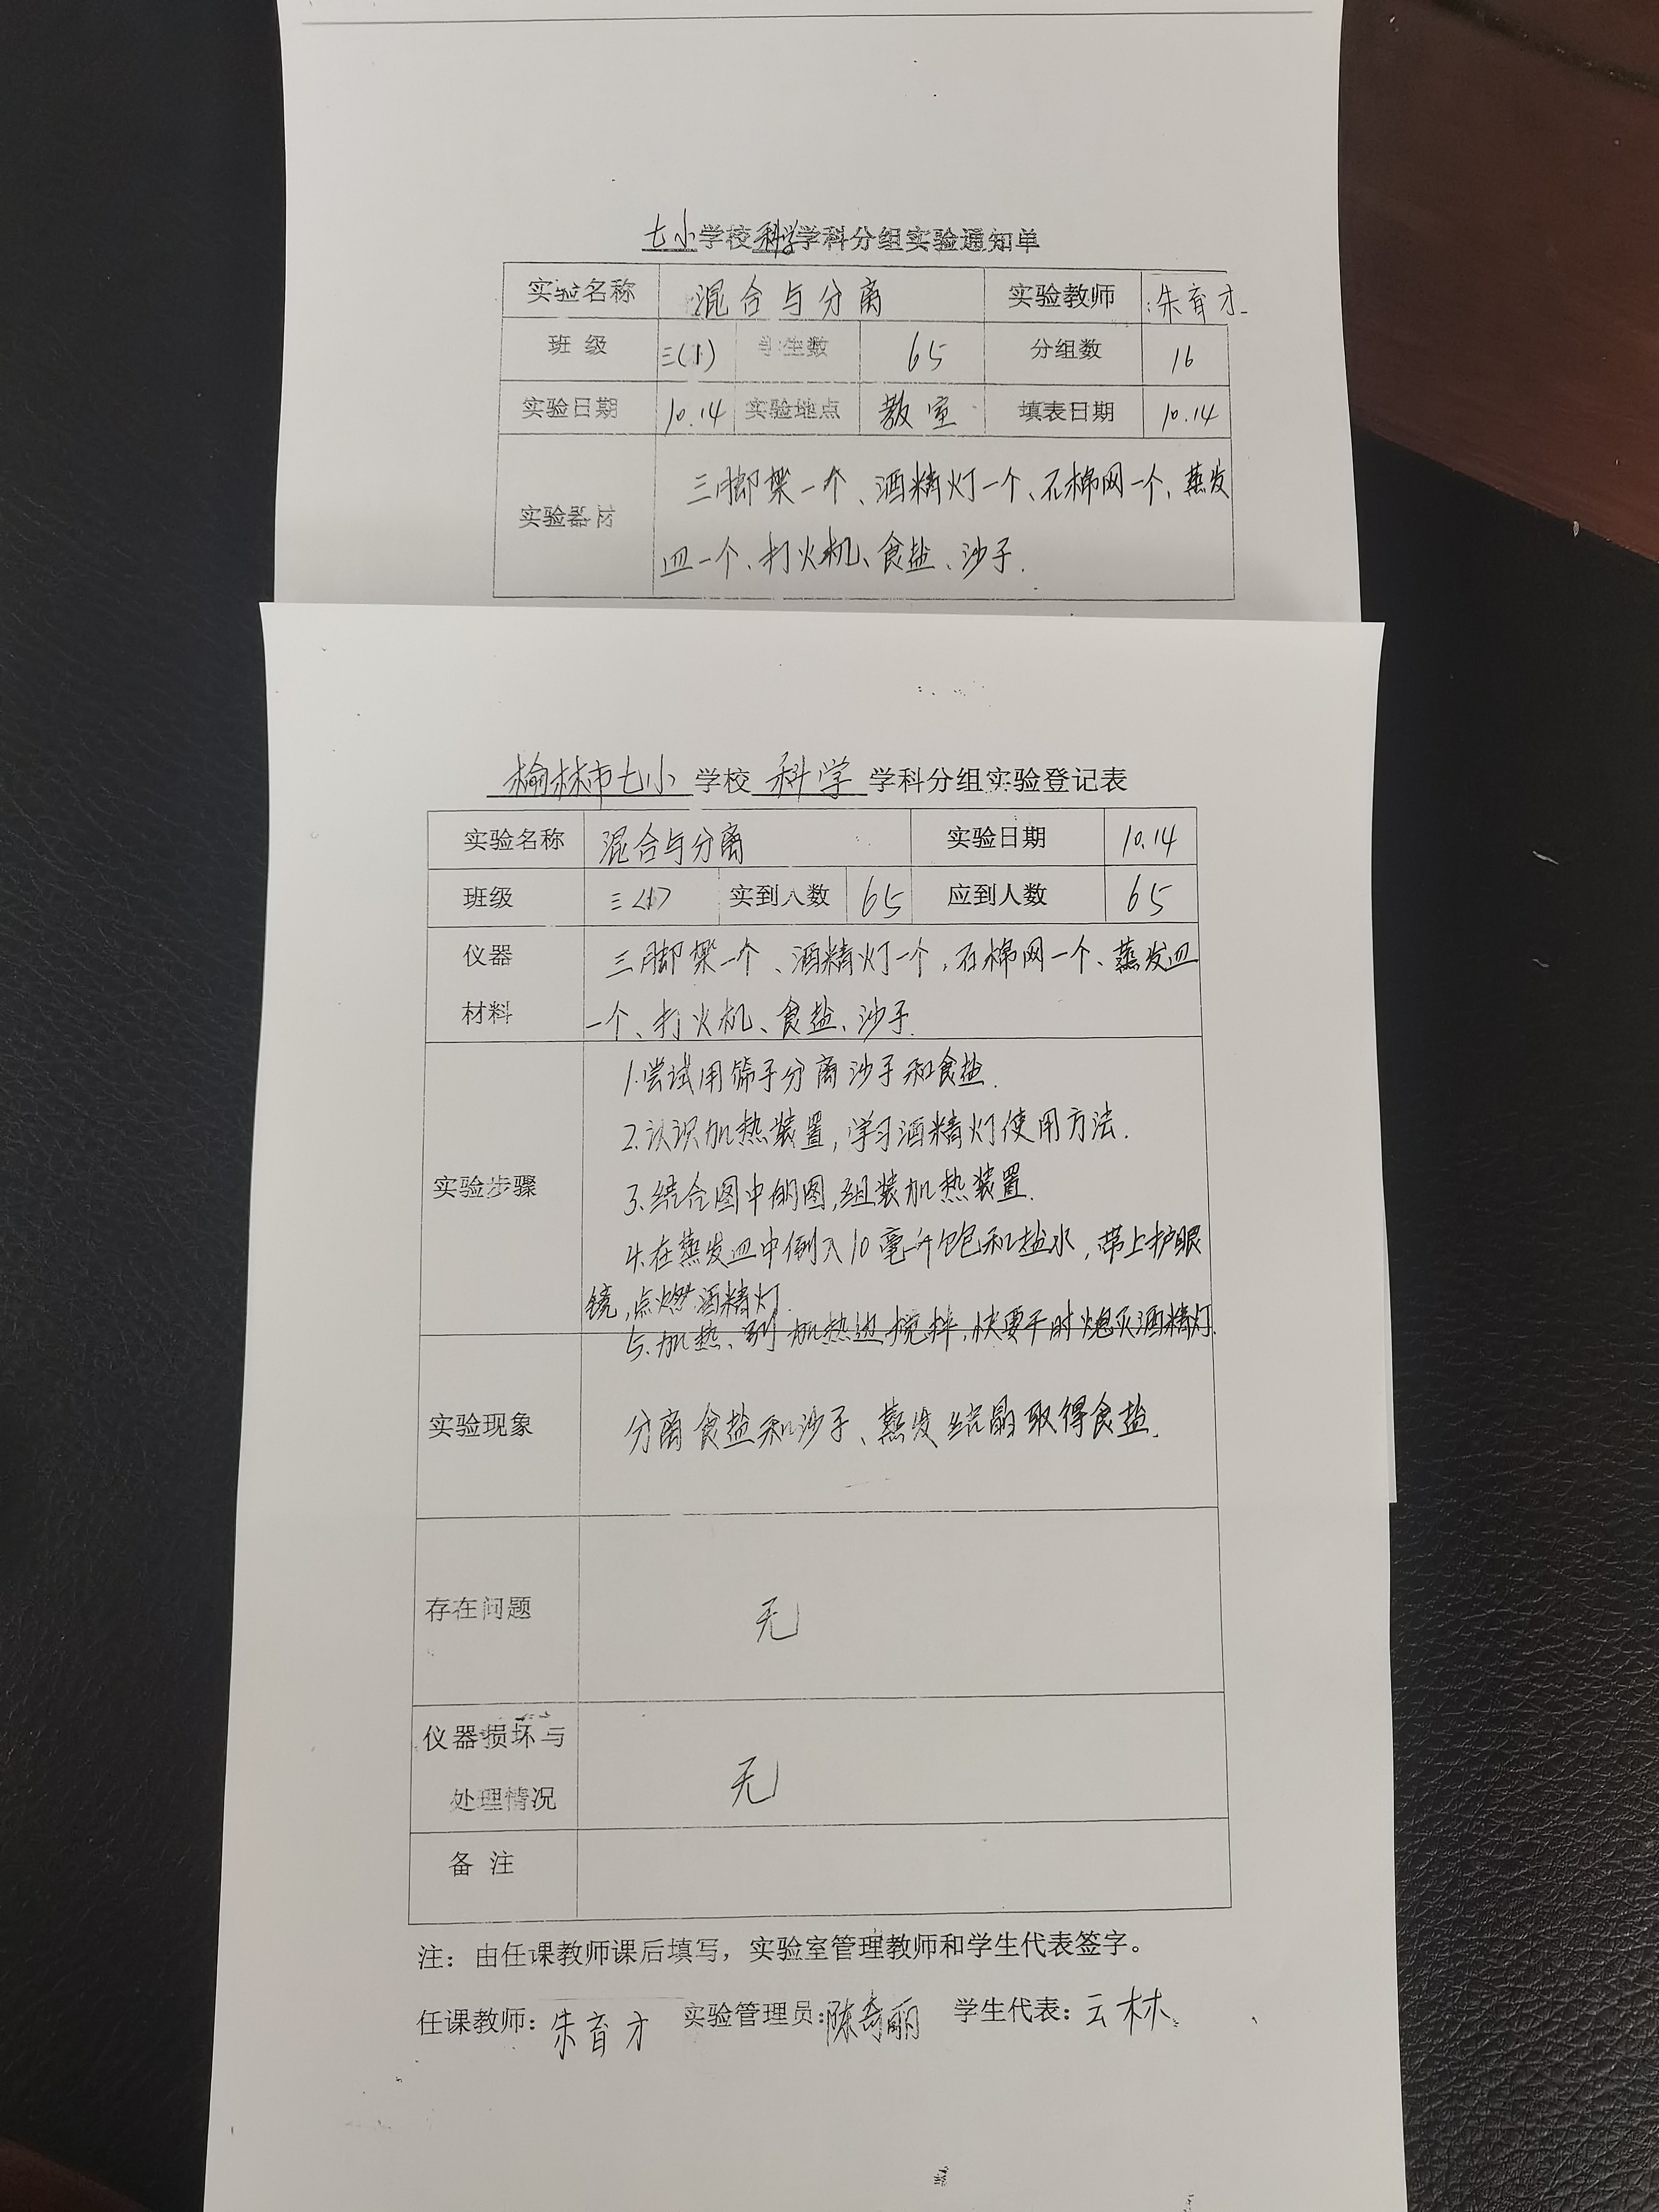 七小学校科学学科分组实验通知单
实验名称 混合与分离 实验教师 朱育才
班 级 三(1) 学生数 65 分组数 16
实验日期 10.14 实验地点 教室 填表日期 10.14
实验器材 三脚架一个、酒精灯一个、石棉网一个、蒸发
皿一个、打火机、食盐、沙子.
榆林市七小 学校 科学 学科分组实验登记表
实验名称 混合与分离 实验日期 10.14
班级 三(1) 实到人数 65 应到人数 65
仪器 三脚架一个、酒精灯一个,石棉网一个、蒸发皿
材料 一个、打火机、食盐、沙子.
1.尝试用筛子分离沙子和食盐.
2.认识加热装置,学习酒精灯使用方法.
实验步骤 3.结合图中的图,组装加热装置.
4.在蒸发皿中倒入10毫升饱和盐水,带上护眼
镜,点燃酒精灯.
5.加热、 加热边搅拌,快要干时熄灭酒精灯.
实验现象 分离食盐和沙子、蒸发结晶取得食盐.
存在问题 无
仪器损坏与
处理情况 无
备 注
注：由任课教师课后填写，实验室管理教师和学生代表签字。
任课教师：朱育才 实验管理员：陈奇丽 学生代表：云林